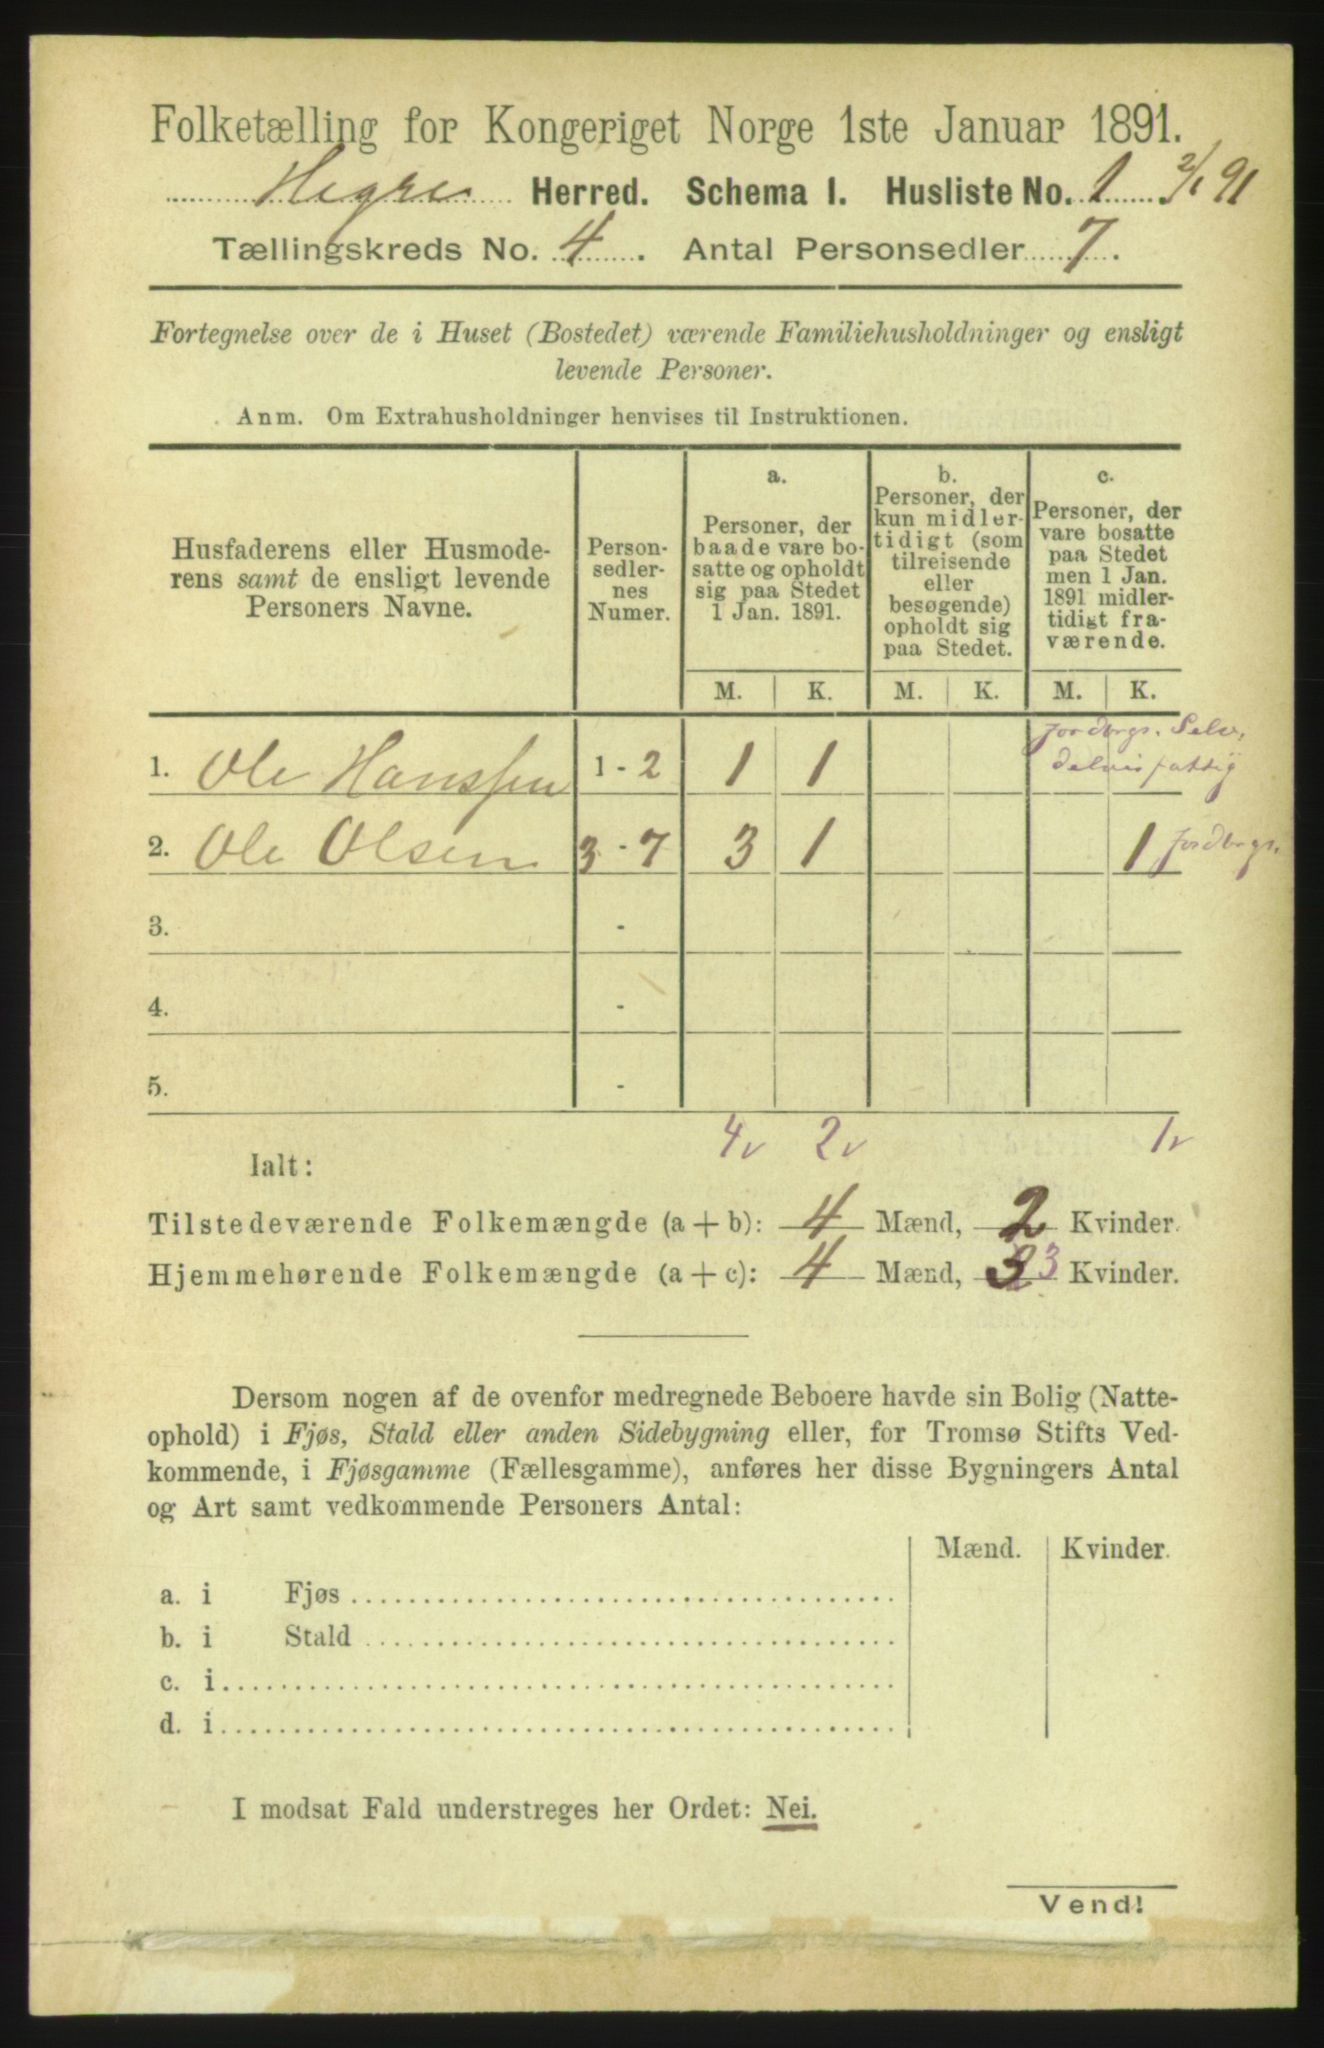 Folketælling for Kongeriget Norge 1ste Januar 1891.
Hegre Herred. Schema 1. Husliste No. 1 2/1 91
Tællingskreds No. 4. Antal Personsedler 7.
Fortegnelse over de i Huset (Bostedet) værende Familiehusholdninger og ensligt
levende Personer.
Anm. Om Extrahusholdninger henvises til Instruktionen.
Husfaderens eller Husmode-
rens samt de ensligt levende
Personers Navne.
Person-
sedler-
nes
Numer.
a.
Personer, der
baade vare bo-
satte og opholdt
sig paa Stedet
1 Jan. 1891.
b.
Personer, der
kun midler-
tidigt (som
tilreisende
eller
besøgende)
opholdt sig
paa Stedet.
c.
Personer, der
vare bosatte
paa Stedet
men 1 Jan.
1891 midler-
tidigt fra-
værende.
M. K. M. K. M. K.
jordbrgs. Selv.
1. Ole Hanssen 1 - 2 1 1 delvis fattig
2. Ole Olsen 3 - 7 3 1 1 jordbrgs.
3. -
4. -
5. -
4v 2v 1v
Ialt:
Tilstedeværende Folkemængde (a + b): 4 Mænd, 2 Kvinder.
Hjemmehørende Folkemængde (a + c): 4 Mænd, 3 3 Kvinder.
Dersom nogen af de ovenfor medregnede Beboere havde sin Bolig (Natte-
ophold) i Fjøs, Stald eller anden Sidebygning eller, for Tromsø Stifts Ved-
kommende, i Fjøsgamme (Fællesgamme), anføres her disse Bygningers Antal
og Art samt vedkommende Personers Antal:
Mænd. Kvinder.
a. i Fjøs
b. i Stald
c. i
d. i
I modsat Fald understreges her Ordet: Nei.
Vend!